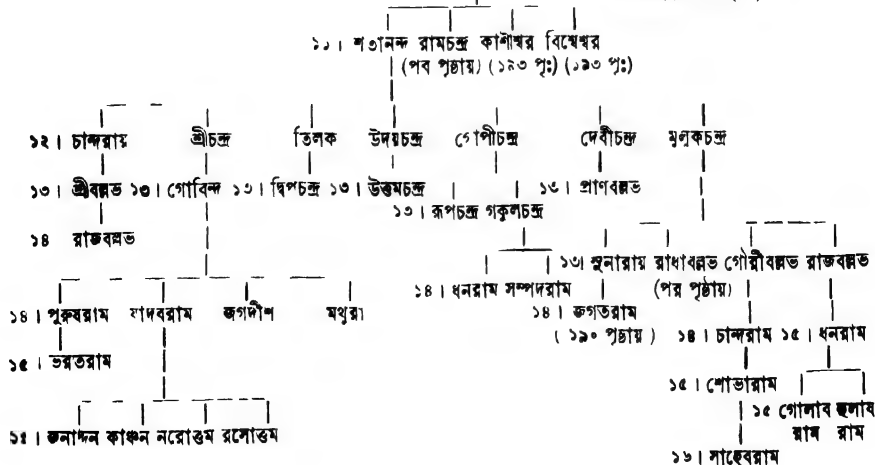 ১১। শতানন্দ রামচন্দ্র কাশীশ্বর বিশ্বেশ্বর
(পর পৃষ্ঠায়) (১৯৩ পৃঃ) (১৯৩ পৃঃ)
১২। চান্দরায় শ্রীচন্দ্র তিলক উদয়চন্দ্র গোপীচন্দ্র দেবীচন্দ্র মুলুকচন্দ্র
১৩। শ্রীবল্লভ ১৩। গোবিন্দ ১৩। দ্বিপচন্দ্র ১৩। উত্তমচন্দ্র ১৩। প্রাণবল্লভ
১৩। রূপচন্দ্র গকুলচন্দ্র
১৪ রাজবল্লভ
১৩। সুনারায় রাধাবল্লভ গৌরীবল্লভ রাজবল্লভ
(পর পৃষ্ঠায়)
১৪। ধনরাম সম্পদরাম
১৪। পুরুষরাম যাদবরাম জগদীশ মথুরা
১৪। জগতরাম
(১৯০ পৃষ্ঠায়) ১৪। চান্দরাম ১৫। ধনরাম
১৫। ভরতরাম
১৫। শোভারাম
১৫ গোলাব দুলাব
রাম রাম
১৫। জনার্দ্দন কাঞ্চন নরোত্তম রসোত্তম
১৬। সাহেবরাম